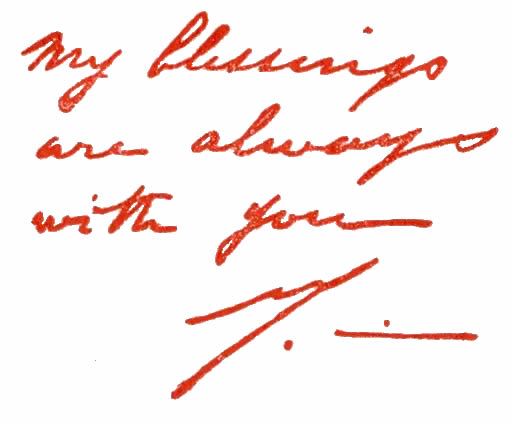 My blessings
are always
with you